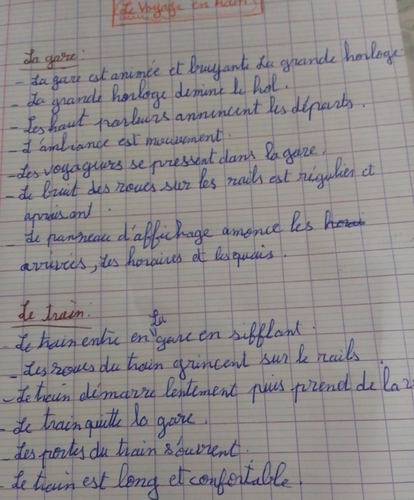 Le voyage en train
La gare:
- La gare est animée et bruyante La grande horloge
- La grande horloge demine le hol.
- Les haut parleurs annincent les départs.
- L'ambiance est mouvement.
- Les voyageurs se pressent dans la gare.
- Le bruit des roues sur les rails est régulier et
apaisant.
- Le panneau d'affichage amonce les
arrivées, les horaires et les quais.
Le train.
- Le train entre en La gare en sifflant.
- Les roues du train grincent sur le rails.
- Le train démarre lentement puis prend de la
- Le train quitte la gare.
- Les portes du train s'ouvrent.
- Le train est long et confortable.